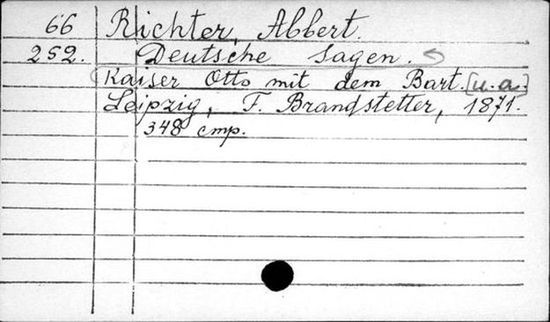 66 Richter, Albert.
252. Deutsche Sagen.
(Kaiser Otto mit dem Bart. [u.a.]
Leipzig, F. Brandstetter, 1871.
348 стр.